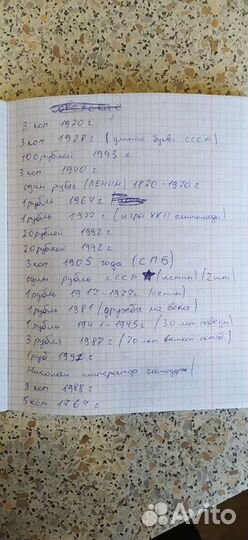 3 коп 1970 г
3 коп 1928 г (длинные буквы СССР)
100 рублей 1993 г
3 коп 1940 г
один рубль (ЛЕНИН) 1870-1970 г
1 рубль 1964 г
1 рубль 1977 г (игры XXII олимпиады)
20 рублей 1992 г
20 рублей 1992 г
3 коп 1905 года (СПБ)
один рубль СССР (ленин) (2шт)
1 рубль 1917-1977г (ленин)
1 рубль 1981 (дружба на века)
1 рубль 1941-1945г (30 лет победы)
3 рубля 1987 г (70 лет
1 руб 1991 г
Николай император самодерж
3 коп 1988 г
5 коп 1764 г
Avito